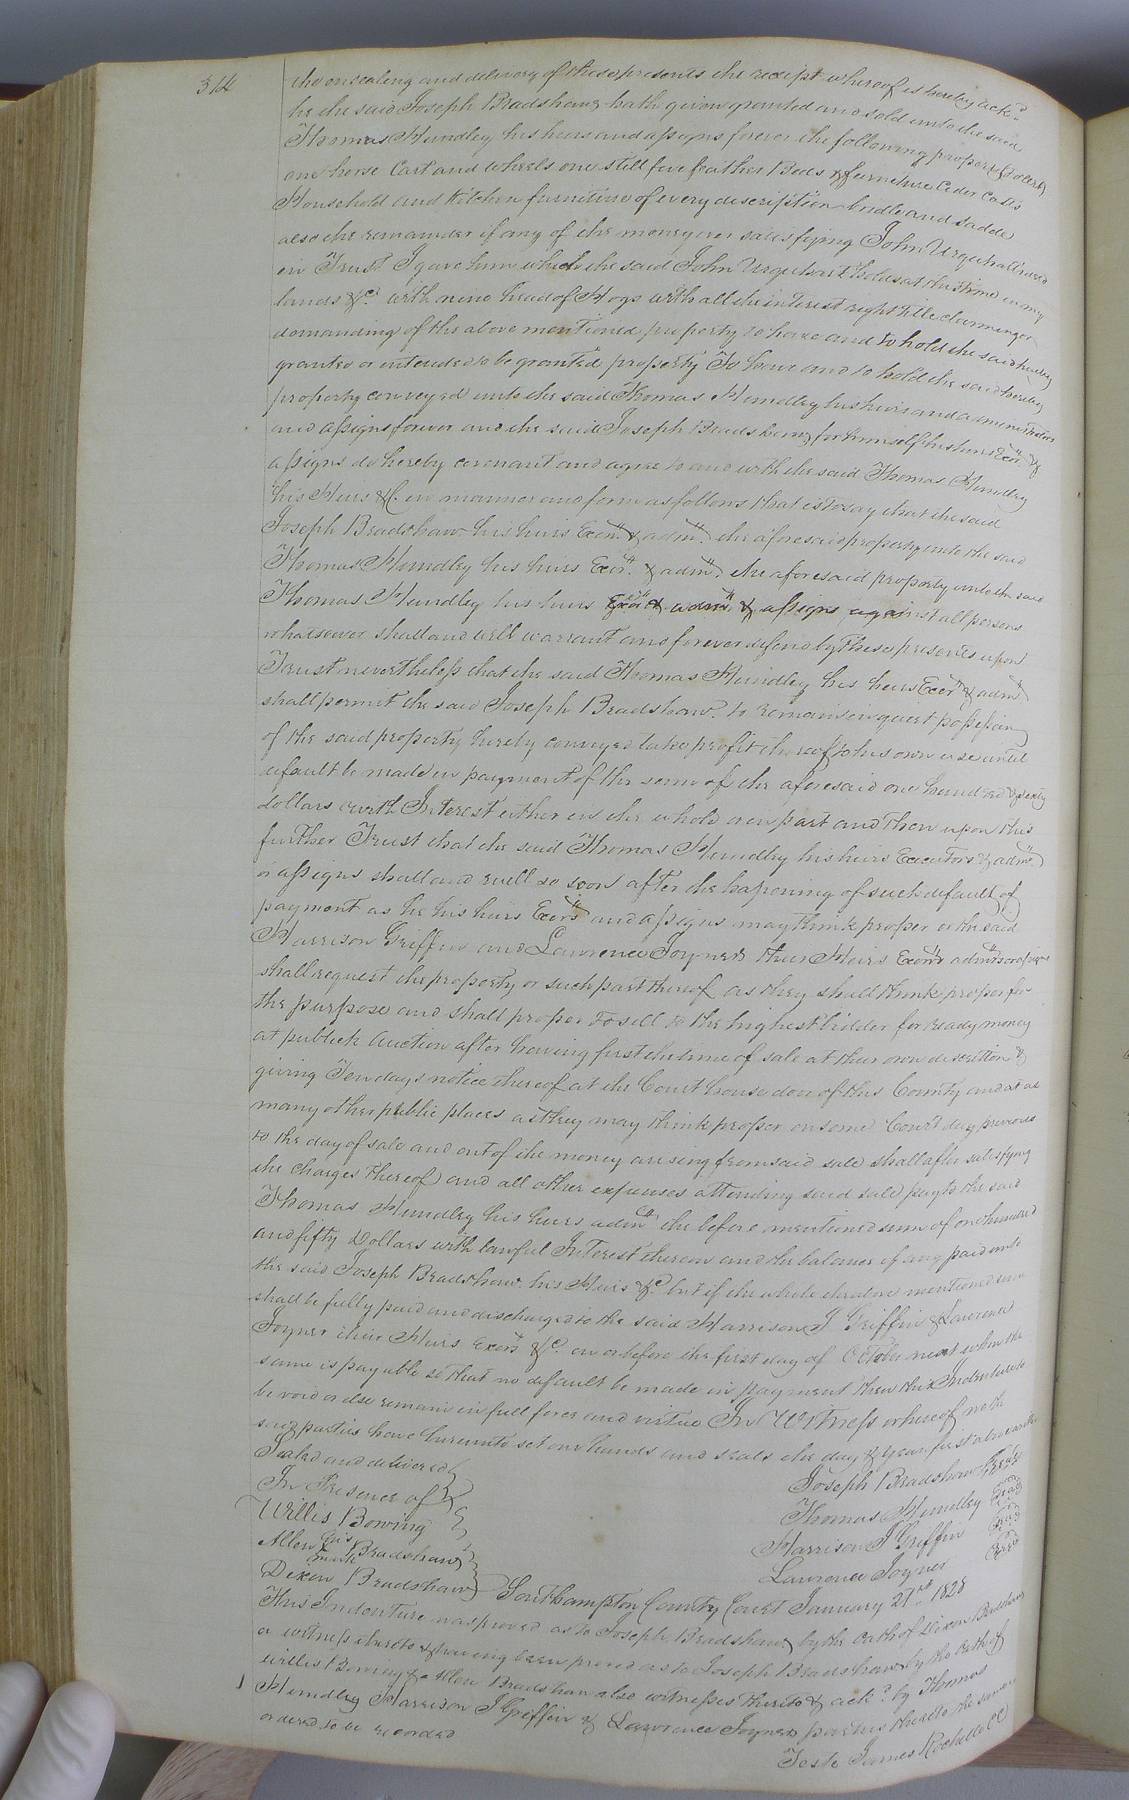 314
the ensealing and delivery of these presents the receipt whereof is hereby ackd
he the said Joseph Bradshaw hath given granted and sold unto the said
Thomas Hundley his heirs and assigns forever the following property
one horse Cart and wheels one still five feather Beds & furniture Ceder Casks
Household and Kitchen furniture of every description bridle and saddle
also the remainder if any of the money over satisfying John Urquhart
in Trust I gave him which the said John Urquhart holds at this time on my
lands &c with nine head of Hogs with all the interest right title
demanding of the above mentioned property to have and to hold the said hereby
granted or intended to be granted property To have and to hold the said hereby
property conveyed unto the said Thomas Hundley his heirs and administrators
and assigns forever and the said Joseph Bradshaw for himself his heirs Exors &
assigns do hereby covenant and agree to and with the said Thomas Hundley
his Heirs &c in manner and form as follows that is to say that the said
Joseph Bradshaw his heirs Exors & adms the aforesaid property unto the said
Thomas Hundley his heirs Exors & adms the aforesaid property unto the said
Thomas Hundley his heirs Exors & adms & assigns against all persons
whatsoever shall and will warrant and forever defend by these presents upon
Trust nevertheless that the said Thomas Hundley his heirs Exors & adms
shall permit the said Joseph Bradshaw to remain in quiet possession
of the said property hereby conveyed take profit thereof to his own use until
default be made in payment of the sum of the aforesaid one hundred &
dollars with Interest either in the whole or in part and then upon this
further Trust that the said Thomas Hundley his heirs Executors & adms
or assigns shall and will so soon after the hapening of such default of
payment as he his heirs Exors and assigns may think proper or the said
Harrison Griffin and Lawrence Joyner their Heirs Exors adms or assigns
shall request the property or such part thereof as they shall think proper for
the purpose and shall proper to sell to the highest bidder for ready money
at publick Auction after having first the time of sale at their own discretion &
giving Ten days notice thereof at the Court house door of this County and at as
many other public places as they may think proper on some Court day previous
to the day of sale and out of the money arising from said sale shall after satisfying
the charges thereof and all other expenses attending said sale pay to the said
Thomas Hundley his heirs adms the before mentioned sum of one hundred
and fifty Dollars with lawful Interest thereon and the balance if any paid unto
the said Joseph Bradshaw his Heirs &c but if the whole the above mentioned sum
shall be fully paid and discharged to the said Harrison J Griffin & Lawrence
Joyner their Heirs Exors &c on or before the first day of October next when the
same is payable so that no default be made in payment then this Indenture to
be void or else remain in full force and virtue In Witness whereof we the
said parties have hereunto set our hands and seals the day & year first above written
Sealed and delivered
In Presence of
Joseph Bradshaw Seal
Willis Bowing
Thomas Hundley Seal
Allen his mark Bradshaw
Harrison J Griffin Seal
Dixon Bradshaw
Lawrence Joyner Seal
Southampton County Court January 21st 1828
This Indenture was proved as to Joseph Bradshaw by the oath of Dixon Bradshaw
a witness thereto & having been proved as to Joseph Bradshaw by the oath of
Willis Bowing & Allen Bradshaw also witnesses thereto & ackd by Thomas
Hundley Harrison J Griffin & Lawrence Joyner parties thereto the same is
ordered to be recorded
Teste James Rochelle CC